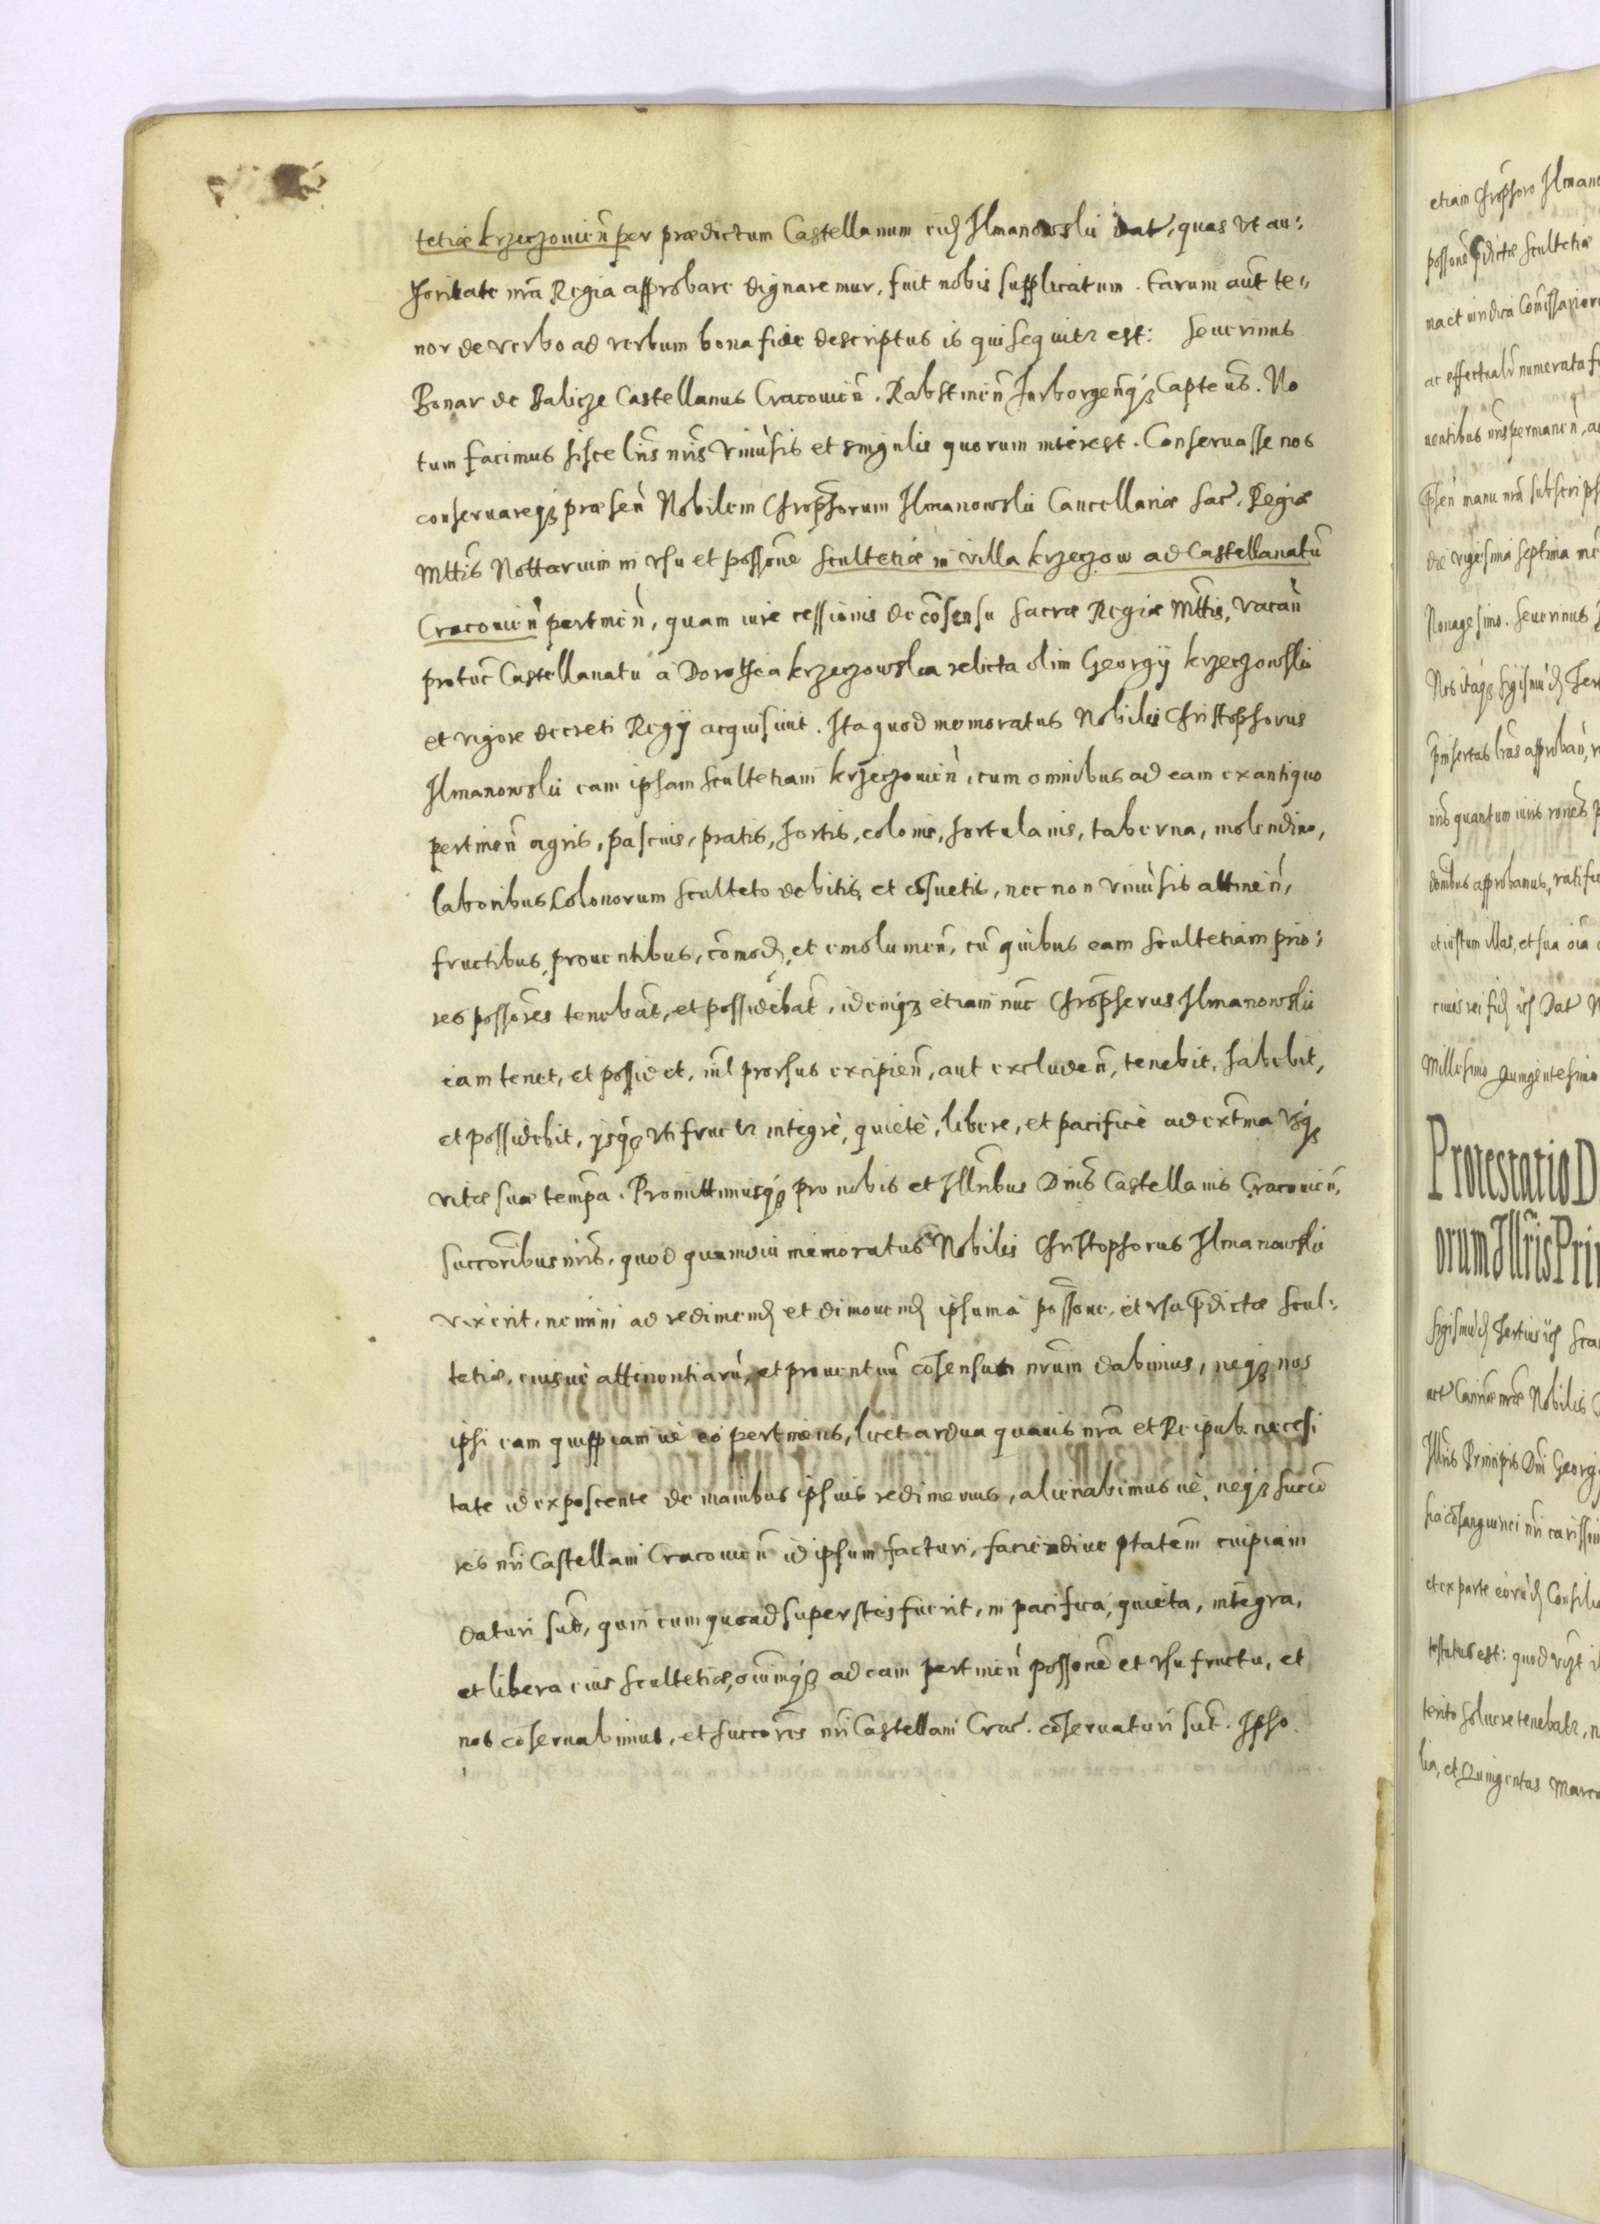 tetiæ krzeczouien̄ per prædictum Castellanum eid Ilmanowskii dat, quas vt au:
thoritate nr̄a Regia approbare dignaremur, fuit nobis supplicatum. Earum aut̄ te,,
nor de verbo ad verbum bona fide descriptus is qui sequitr est: Seuerinus
Bonar de Balicze Castellanus Cracouien̄. Rabstinen̄ Capteus. No
tum facimus hisce lr̄is nr̄is vniu̇sis et singulis quorum interest. Conseruasse nos
conseruareq3 præsen̄ Nobilem Chrōphorum Ilmanowskii Cancellariæ Sac. Regiæ
Mttis Nottarium in vsu et possōne scultetiæ in villa krzeczow ad Castellanatū
Cracouien̄ pertinen̄, quam iure cessionis de cōsensu Sacræ Regiæ Mttis, vacan̄
protūc Castellanatu a Dorothea krzeczowska relicta olim Georgÿ krzeczowskii
et vigore decreti Regÿ acquisiuit. Ita quod memoratus Nobilis Christophorus
Ilmanowskii eam ipsam scultetiam krzeczouien̄, cum omnibus ad eam ex antiquo
pertinen̄ agris, pascuis, pratis, hortis, colonis, hortulanis, taberna, molendino,
laboribus Colonorum sculteto debitis, et cōsuetis, nec non vniu̇sis attinen̄,
fructibus, prouentibus, cōmod, et emolumen̄, cū quibus eam scultetiam prio:
res possōres tenebāt, et possidebāt, idemq3 etiam nūc Chrōpherus Ilmanowskii
eam tenet, et possidet, nīl prorsus excipien̄, aut excluden̄, tenebit, habebit,
et possidebit, ysq3 vti fructr integrè, quietè, libere, et pacificè ad extma vsq3
vitæ suæ tempa. Promittimusq3 pro nobis et Illribus Dnis Castellanis Cracouien̄,
succōribus nris, quod quamdiu memoratus Nobilis Christophorus Ilmanowskii
vixerit, nemini ad redimend et dimouend ipsum à possōne, et vsu p̄dictæ scul:
tetiæ, eiusue attinentiarū, et prouentuū cōsensum nrum dabimus, neq3 nos
ipsi eam quippiamue eò pertinens, licet ardua quauis nr̄a et Reipub. necessi
tate id exposcente de manibus ipsius redimemus, alienabimusue, neq3 succō
res nr̄i Castellani Cracouien̄ id ipsum facturi, faciendiue ptatem cuipiam
daturi sūt, quin eum quoad superstes fuerit, in pacifica, quieta, integra,
et libera eius scultetiæ, oīumq3 ad eam pertinen̄ possōne et vsufructu, et
nos cōseruabimus, et succōres nr̄i Castellani Crac. cōseruaturi sūt. Ipso
etiam Chrōphoro
possōne p̄dictæ scultetiæ
ac effectualr numerata
p̄sen̄ manu nr̄a
die vigesima septima
Nonagesimo. Seuerinus
Nos itaq3
nr̄is quantum iuris
approbamus,
et iustum illas, et sua
cuius rei fid
Millesimo quingentesimo
Protestatio D
orum Illris Pri
Nobilis
Illris Principis Dni Georg
et ex parte
testatus est: quod
soluere tenebatr,
lia, et Quingentas